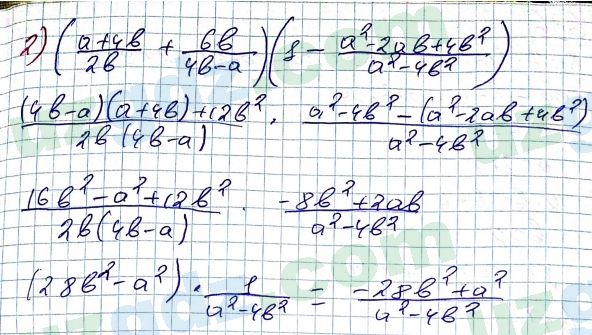 2) ( (a+4b)/(2b) + 6b/(4b-a) ) ( 1 - (a²-2ab+4b²)/(a²-4b²) )
((4b-a)(a+4b)+12b²)/(2b(4b-a)) · (a²-4b²-(a²-2ab+4b²))/(a²-4b²)
(16b²-a²+12b²)/(2b(4b-a)) · (-8b²+2ab)/(a²-4b²)
(28b²-a²) · 1/(a²-4b²) = (-28b²+a²)/(a²-4b²)